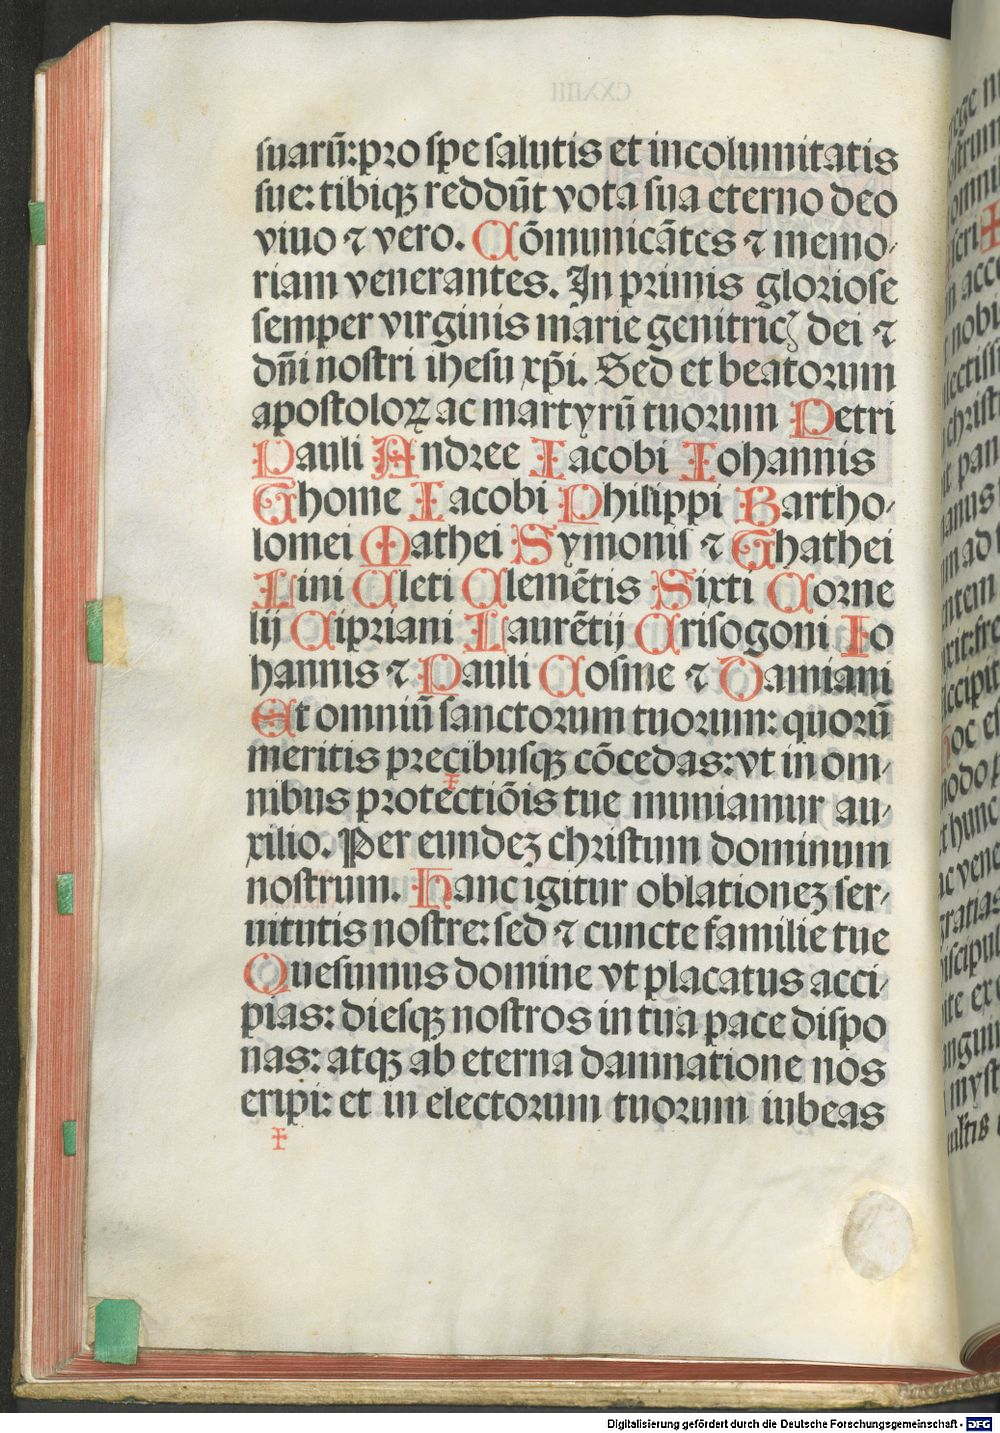 suarū: pro spe salutis et incolumitatis
sue: tibiqꝫ reddūt vota sua eterno deo
viuo ⁊ vero. Cōmunicātes ⁊ memo-
riam venerantes. In primis gloriose
semper virginis marie genitricꝭ dei ⁊
dn̄i nostri ihesu xp̄i. Sed et beatorum
apostoloꝝ ac martyrū tuorum Petri
Pauli Andree Iacobi Iohannis
Thome Iacobi Philippi Bartho-
lomei Mathei Symonis ⁊ Thathei
Lini Cleti Clemētis Sixti Corne
lij Cipriani Laurētij Crisogoni Io
hannis ⁊ Pauli Cosme ⁊ Damiani
Et omniū sanctorum tuorum: quorū
meritis precibusqꝫ cōcedas: vt in om-
nibus protectiōis tue muniamur au-
xilio. Per eundeꝫ christum dominum
nostrum. Hanc igitur oblationeꝫ ser-
uitutis nostre: sed ⁊ cuncte familie tue
Quesumus domine vt placatus acci-
pias: diesqꝫ nostros in tua pace dispo
nas: atqꝫ ab eterna damnatione nos
eripi: et in electorum tuorum iubeas
Digitalisierung gefördert durch die Deutsche Forschungsgemeinschaft - DFG